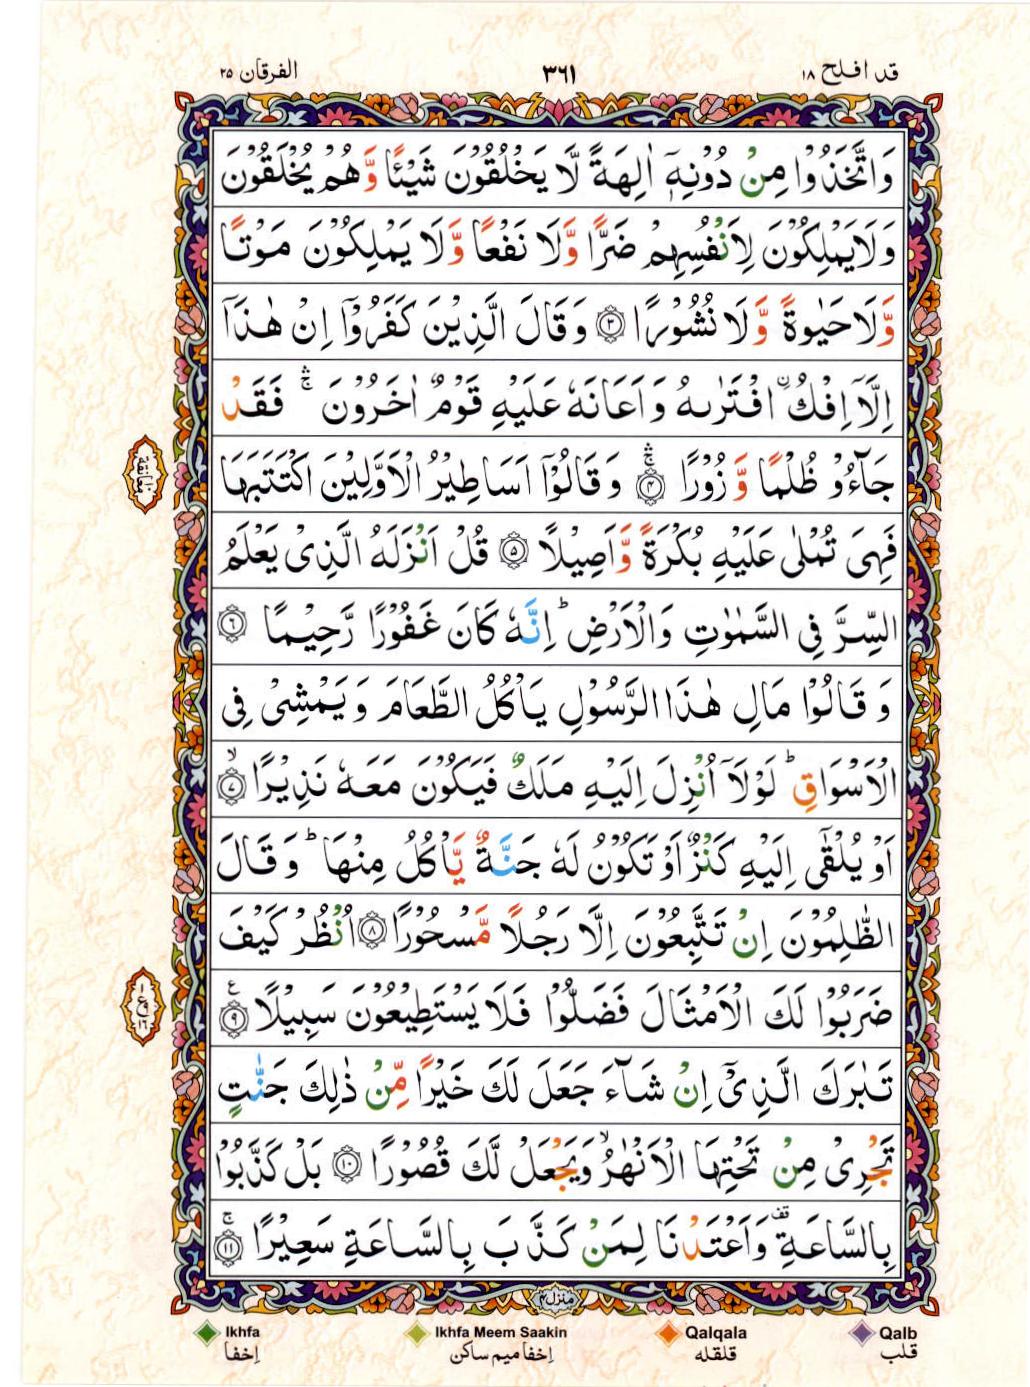 الفرقان ۲۵
۳۶۱
قد افلح ۱۸
وَاتَّخَذُوْا مِنْ دُوْنِهٖۤ اٰلِهَةً لَّا يَخْلُقُوْنَ شَيْـًٔا وَّهُمْ يُخْلَقُوْنَ
وَلَايَمْلِكُوْنَ لِاَنْفُسِهِمْ ضَرًّا وَّلَا نَفْعًا وَّلَا يَمْلِكُوْنَ مَوْتًا
وَّلَاحَيٰوةً وَّلَا نُشُوْرًا ۝۳ وَقَالَ الَّذِيْنَ كَفَرُوْۤا اِنْ هٰذَاۤ
اِلَّاۤ اِفْكُ ۨافْتَرٰىهُ وَاَعَانَهٗ عَلَيْهِ قَوْمٌ اٰخَرُوْنَ ۛۚ فَقَدْ
جَآءُوْ ظُلْمًا وَّزُوْرًا ۝۴ۛۚ وَقَالُوْۤا اَسَاطِيْرُ الْاَوَّلِيْنَ اكْتَتَبَهَا
معانقة
فَهِىَ تُمْلٰى عَلَيْهِ بُكْرَةً وَّاَصِيْلًا ۝۵ قُلْ اَنْزَلَهُ الَّذِىْ يَعْلَمُ
السِّرَّ فِى السَّمٰوٰتِ وَالْاَرْضِ ؕ اِنَّهٗ كَانَ غَفُوْرًا رَّحِيْمًا ۝۶
وَقَالُوْا مَالِ هٰذَا الرَّسُوْلِ يَاْكُلُ الطَّعَامَ وَيَمْشِىْ فِى
الْاَسْوَاقِ ؕ لَوْلَاۤ اُنْزِلَ اِلَيْهِ مَلَكٌ فَيَكُوْنَ مَعَهٗ نَذِيْرًا ۝۷ۙ
اَوْ يُلْقٰۤى اِلَيْهِ كَنْزٌ اَوْ تَكُوْنُ لَهٗ جَنَّةٌ يَّاْكُلُ مِنْهَا ؕ وَقَالَ
الظّٰلِمُوْنَ اِنْ تَتَّبِعُوْنَ اِلَّا رَجُلًا مَّسْحُوْرًا ۝۸ اُنْظُرْ كَيْفَ
ضَرَبُوْا لَكَ الْاَمْثَالَ فَضَلُّوْا فَلَا يَسْتَطِيْعُوْنَ سَبِيْلًا ۝۹ ع
تَبٰرَكَ الَّذِىْۤ اِنْ شَآءَ جَعَلَ لَكَ خَيْرًا مِّنْ ذٰلِكَ جَنّٰتٍ
تَجْرِىْ مِنْ تَحْتِهَا الْاَنْهٰرُ ۙ وَيَجْعَلْ لَّكَ قُصُوْرًا ۝۱۰ بَلْ كَذَّبُوْا
بِالسَّاعَةِ ۟ وَاَعْتَدْنَا لِمَنْ كَذَّبَ بِالسَّاعَةِ سَعِيْرًا ۝۱۱ۚ
منزل۴
Ikhfa
Ikhfa Meem Saakin
Qalqala
Qalb
اِخفا
اِخفا میم ساکن
قلقله
قلب